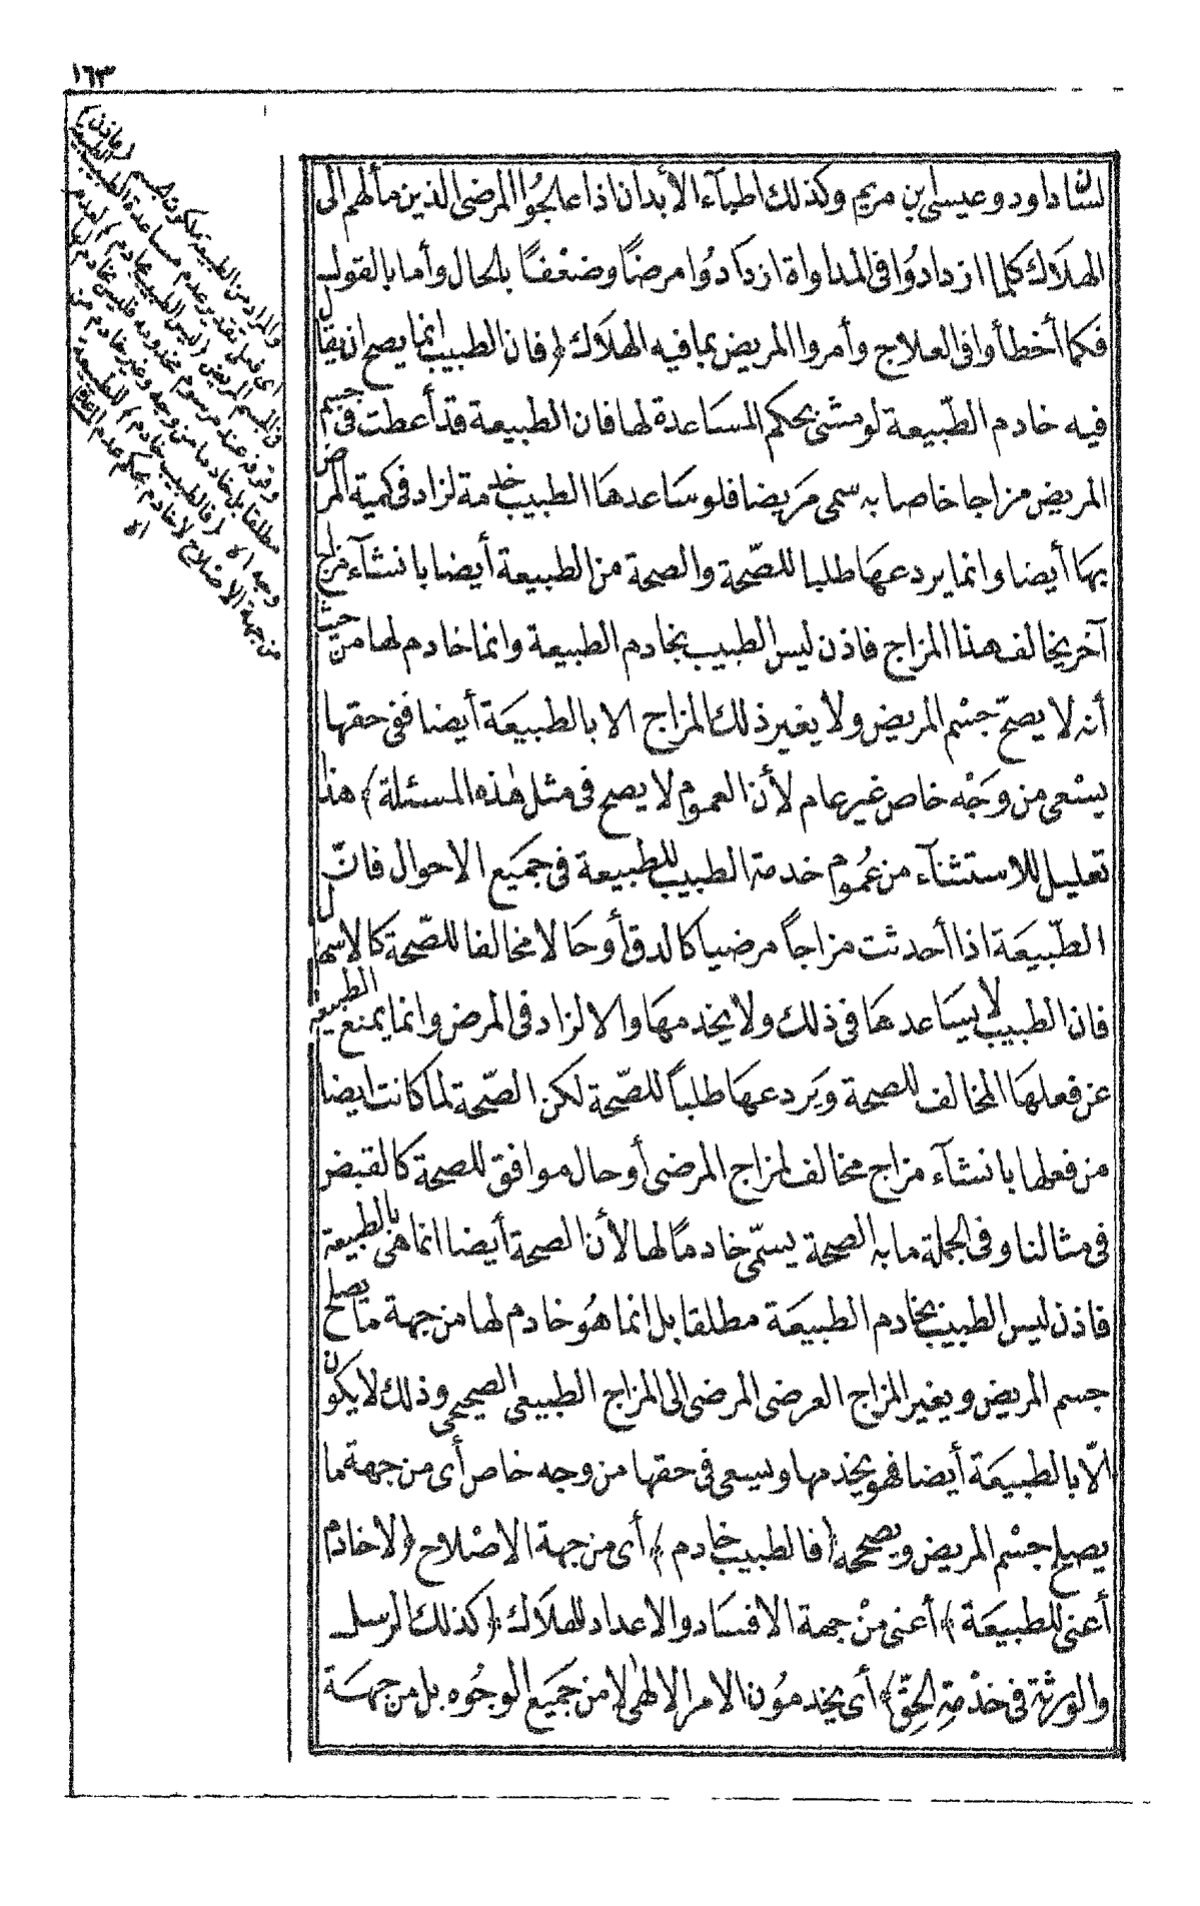 ١٦٣
لسان داود وعيسى بن مريم وكذلك اطبآء الأبدان اذا عالجوا المرضى الذين مآلهم الى
الهلاك كلما ازدادوا فى المداواة ازدادوا مرضًا وضعفًا بالحال وأما بالقول
فكما أخطأوا فى العلاج وأمروا المريض بما فيه الهلاك ﴿فان الطبيب انما يصح ان يقال
فيه خادم الطّبيعة لو مشى بحكم المساعدة لها فان الطبيعة قد أعطت فى جسم
المريض مزاجا خاصا به سمى مريضا فلو ساعدها الطبيب خدمة لزاد فى كمية المرض
بها أيضا وانما يردعها طلبا للصّحة والصحة من الطبيعة أيضا بانشآء مزاج
آخر يخالف هذا المزاج فاذن ليس الطبيب بخادم الطبيعة وانما خادم لها من حيث
أنه لا يصحّ جسْم المريض ولا يغير ذلك المزاج الا بالطبيعَة أيضا ففى حقها
يسْعى من وَجْه خاص غير عام لأن العموم لا يصح فى مثل هٰذه المسئلة﴾ هذا
تعليل للاستثنآء من عُموم خدمة الطبيب للطبيعة فى جميَع الاحوال فانّ
الطّبيعَة اذا أحدثت مزاجاً مرضيا كالدق أو حَالا مخالفا للصّحة كالاسهال
فان الطبيب لا يسَاعدهَا فى ذلك ولا يخدمهَا والا لزاد فى المرض وانما يمنع الطبيعة
عن فعلهَا المخالف للصحة وَيردعهَا طلباً للصّحة لكن الصّحة لما كانت ايضا
من فعلها بانشآء مزاج مخالف لمزاج المرضى أو حال موافق للصحة كالقبض
فى مثالنا وفى الجملة ما به الصحة يسمّى خادمًا لها لأن الصحة أيضا انما هى بالطبيعة
فاذن ليس الطبيب بخادم الطبيعَة مطلقا بل انما هُو خادم لها من جهة ما يصلح
جسم المريض ويغير المزاج العرضى المرضى الى المزاج الطبيعى الصحيحى وذلك لا يكون
الّا بالطبيعَة أيضا فهو يخدمها ويسعى فى حقها من وجه خاص أى من جهة ما
يصلح جسْم المريض ويصححه ﴿فالطبيب خادم﴾ أى من جهة الاصْلاح ﴿لا خادم
أعنى للطبيعَة﴾ أعنى منْ جهة الافسَاد والاعداد للهلَاك ﴿كذلك الرسل
والورثة فى خدْمةِ الحِقّ﴾ أى يخدموُن الامر الالهٰى لا من جَميَع الوجُوه بل من جهَة
والمراد من الطبيعة ملكوت الجسم ﴿فاذن﴾
اى فعل تقدير عدم مساعدة الطبيب الطبيعة
فى الجسم المريض ﴿ليس الطبيب بخادم﴾ لعدم
وقوفه عند مرسوم مخدومه فليس بخادم لها
مطلقا بل خادما من وجه وغير خادم من
وجه اه ﴿فالطبيب خادم﴾ للطبيعة
من جهة الاصلاح لا خادم بحكم عدم المساعدة
اه